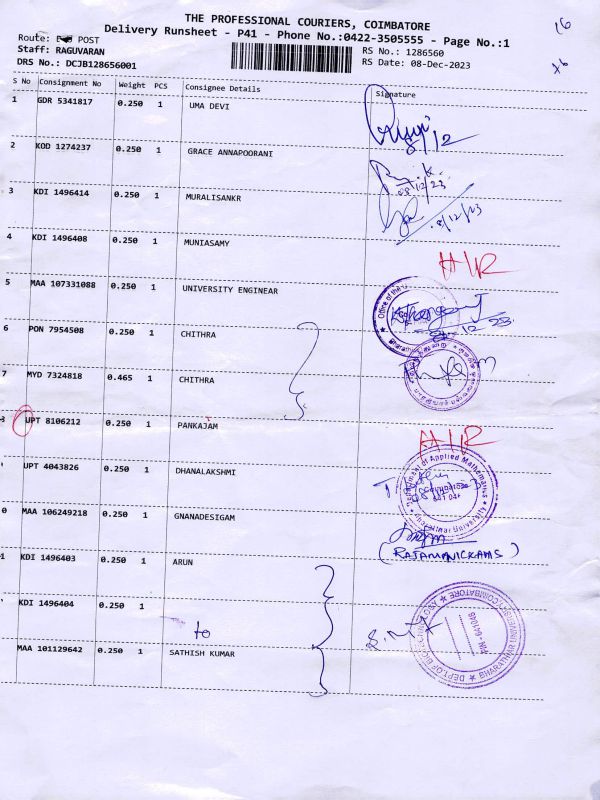 THE PROFESSIONAL COURIERS, COIMBATORE
Delivery Runsheet - P41 - Phone No.:0422-3505555 - Page No.:1
Route: POST
RS No.: 1286560
Staff: RAGUVARAN
RS Date: 08-Dec-2023
DRS No.: DCJB128656001
16
S No Consignment No Weight PCS Consignee Details Signature
1 GDR 5341817 0.250 1 UMA DEVI
8/12
2 KOD 1274237 0.250 1 GRACE ANNAPOORANI
08/12/23
3 KDI 1496414 0.250 1 MURALISANKR
8/12/23
4 KDI 1496408 0.250 1 MUNIASAMY
H/R
5 MAA 107331088 0.250 1 UNIVERSITY ENGINEAR
Office of the
12 23
6 PON 7954508 0.250 1 CHITHRA
7 MYD 7324818 0.465 1 CHITHRA
8 UPT 8106212 0.250 1 PANKAJAM
H/R
UPT 4043826 0.250 1 DHANALAKSHMI
Department of Applied Mathematics
Bharathiar University
0 MAA 106249218 0.250 1 GNANADESIGAM
(RAJAMANICKAMS)
1 KDI 1496403 0.250 1 ARUN
KDI 1496404 0.250 1
to
MAA 101129642 0.250 1 SATHISH KUMAR
BHARATHIAR UNIVERSITY, COIMBATORE
PIN - 641046